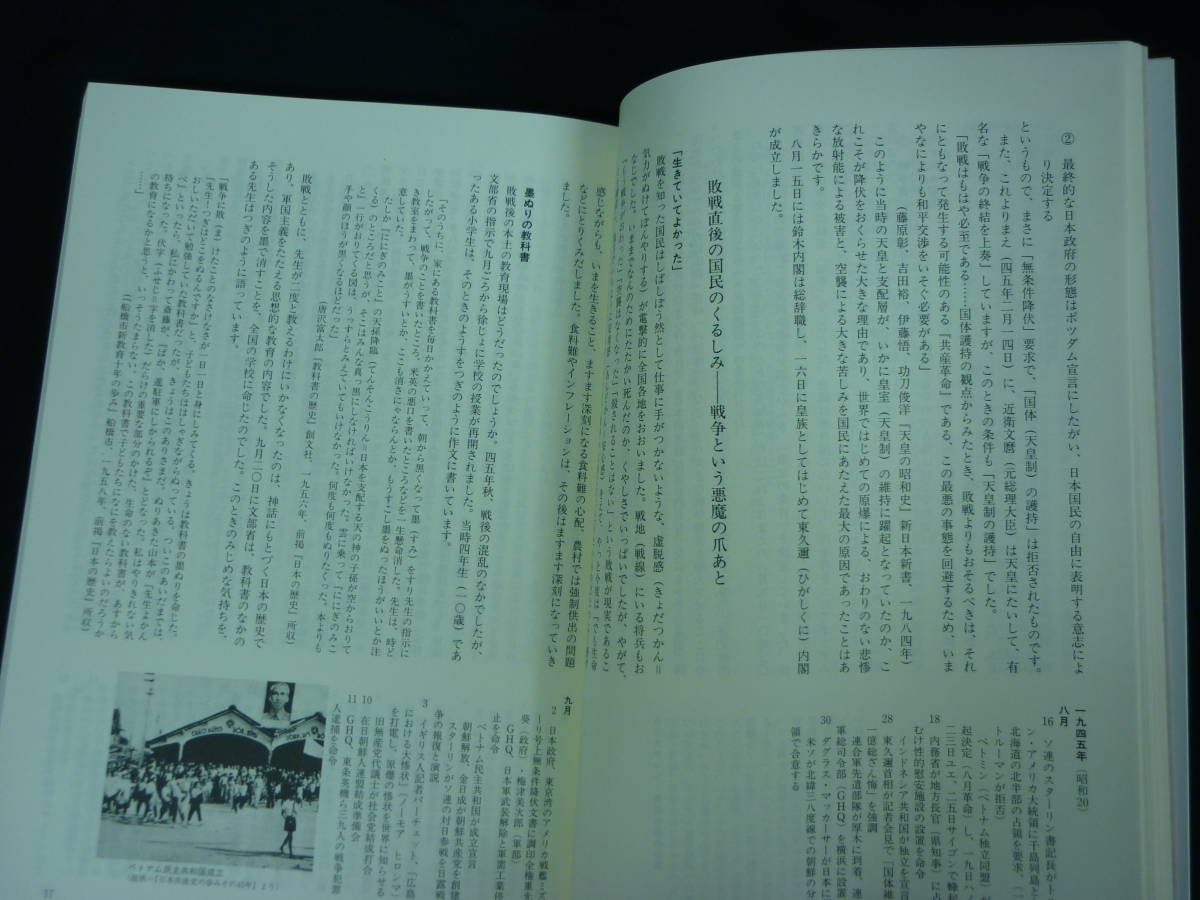 ② 最終的な日本政府の形態はポツダム宣言にしたがい、日本国民の自由に表明する意志によ
り決定する
というもので、まさに「無条件降伏」要求で、「国体（天皇制）の護持」は拒否されたものです。
また、これよりまえ（四五年二月一四日）に、近衛文麿（元総理大臣）は天皇にたいして、有
名な「戦争の終結を上奏」していますが、このときの条件も「天皇制の護持」でした。
「敗戦はもはや必至である……国体護持の観点からみたとき、敗戦よりもおそるべきは、それ
にともなって発生する可能性のある『共産革命』である、この最悪の事態を回避するため、いま
やなによりも和平交渉をいそぐ必要がある」
（藤原彰、吉田裕、伊藤悟、功刀俊洋『天皇の昭和史』新日本新書、一九八四年）
このように当時の天皇と支配層が、いかに皇室（天皇制）の維持に躍起となっていたのか、こ
れこそが降伏をおくらせた大きな理由であり、世界ではじめての原爆による、おわりのない悲惨
な放射能による被害と、空襲による大きな苦しみを国民にあたえた最大の原因であったことはあ
きらかです。
八月一五日には鈴木内閣は総辞職し、一六日に皇族としてはじめて東久邇（ひがしくに）内閣
が成立しました。
敗戦直後の国民のくるしみ――戦争という悪魔の爪あと
「生きていてよかった」
敗戦を知った国民はしばしぼう然として仕事に手がつかないような、虚脱感（きょだつかん＝
気力がぬけてぼんやりする）が電撃的に全国各地をおおいました。戦地（戦線）にいる将兵もお
なじでした。いままでなんのためにたたかい死んだのか、くやしさでいっぱいでしたが、やがて、
一九四五年（昭和20）
八月
16 ソ連のスターリン書記長がト
ン・アメリカ大統領に千島列島と
北海道の北半部の占領を要求、（一
トルーマンが拒否）
ベトミン（ベトナム独立同盟）が
起決定（八月革命）し、一九日ハノ
二三日ユエ、二五日サイゴンで蜂起
18 内務省が地方長官（県知事）に占
むけ性的慰安施設の設置を命令
インドネシア共和国が独立を宣言
28 東久邇首相が記者会見で「国体護持
一億総ざん悔」を強調
連合軍先遣部隊が厚木に到着、連
軍総司令部（GHQ）を横浜に設置
30 ダグラス・マッカーサーが日本に
米ソが北緯三八度線での朝鮮の分
領で合意する
感じながらも、いまを生きること、ますます深刻になる食料難の心配、農村では強制供出の問題
などにとりくみだしました。食料難やインフレーションは、その後はますます深刻になっていき
ました。
墨ぬりの教科書
敗戦後の本土の教育現場はどうだったのでしょうか。四五年秋、戦後の混乱のなかでしたが、
文部省の指示で九月ごろから徐じょに学校の授業が再開されました。当時四年生（一〇歳）であ
ったある小学生は、そのときのようすをつぎのように作文に書いています。
「そのうちに、家にある教科書を毎日かかえていって、朝から黒くなって墨（すみ）をすり先生の指示に
したがって、戦争のことを書いたところ、米英の悪口を書いたところなどを一生懸命消した。先生は、時ど
き教室をまわって、墨がうすいとか、ここも消さにゃならんとか、もうすこし墨をぬったほうがいいとか注
意していた。
たしか『ににぎのみこと』の天孫降臨（てんそんこうりん＝日本を支配する天の神の子孫が空からおりて
くる）のところだと思うが、そこはみんな真っ黒にしなければいけなかった。雲に乗って『ににぎのみこ
と』一行がおりてくる図は、うっすらとみえていてもいけなかった。何度も何度もぬりたくった。本よりも
手や顔のほうが黒くなるほどだった」
（唐沢富太郎『教科書の歴史』創文社、一九五六年、前掲『日本の歴史』所収）
敗戦とともに、先生が二度と教えるわけにいかなくなったのは、神話にもとづく日本の歴史で
あり、軍国主義をたたえる思想的な教育の内容でした。九月二〇日に文部省は、教科書のなかの
そうした内容を墨で消すことを、全国の学校に命じたのでした。このときのみじめな気持ちを、
ある先生はつぎのように語っています。
「戦争に敗（ま）けたことのなさけなさが一日一日と身にしみてくる。きょうは教科書の墨ぬりを命じた。
『先生！つぎはどこをぬるんですか』と、子どもたちははしゃぎながらぬっている。ついこのあいだまでは、
おしいただいて勉強していた教科書だったが、きょうはこのありさまだ。ぬりあきた山本が『先生よかん
べ』といったら、私にかわって斎藤が、『ばか、進駐軍にしかられるぞ』とどなった。私はやりきれない気
持ちになった。伏字（ふせじ＝字を消した）だらけの重要な部分のかけた、生命のない教科書が、あすから
の教育になるかと思うと、いっそたまらない。この教科書で子どもたちになにを教えたらよいのだろうか
……」
（『船橋市新教育十年の歩み』船橋市、一九五八年、前掲『日本の歴史』所収）
九月
2 日本政府、東京湾のアメリカ戦艦ミズ
ーリ号上で無条件降伏文書に調印全権重光
葵（政府）・梅津美次郎（軍部）
GHQ、日本軍武装解除と軍需工業停
止を命令
ベトナム民主共和国が成立宣言
朝鮮解放、金日成が朝鮮共産党を創建
スターリンがソ連の対日参戦を日露戦
争の報復と演説
3 イギリス人記者バーチェット、「広島
における大惨状」（ノーモア ヒロシマ）
を打電し、原爆の惨状を世界に知らせる
旧無産党代議士が社会党結成打合
10 在日朝鮮人連盟結成準備会
11 GHQ、東条英機ら三九人の戦争犯罪
人逮捕を命令
ベトナム民主共和国成立
57